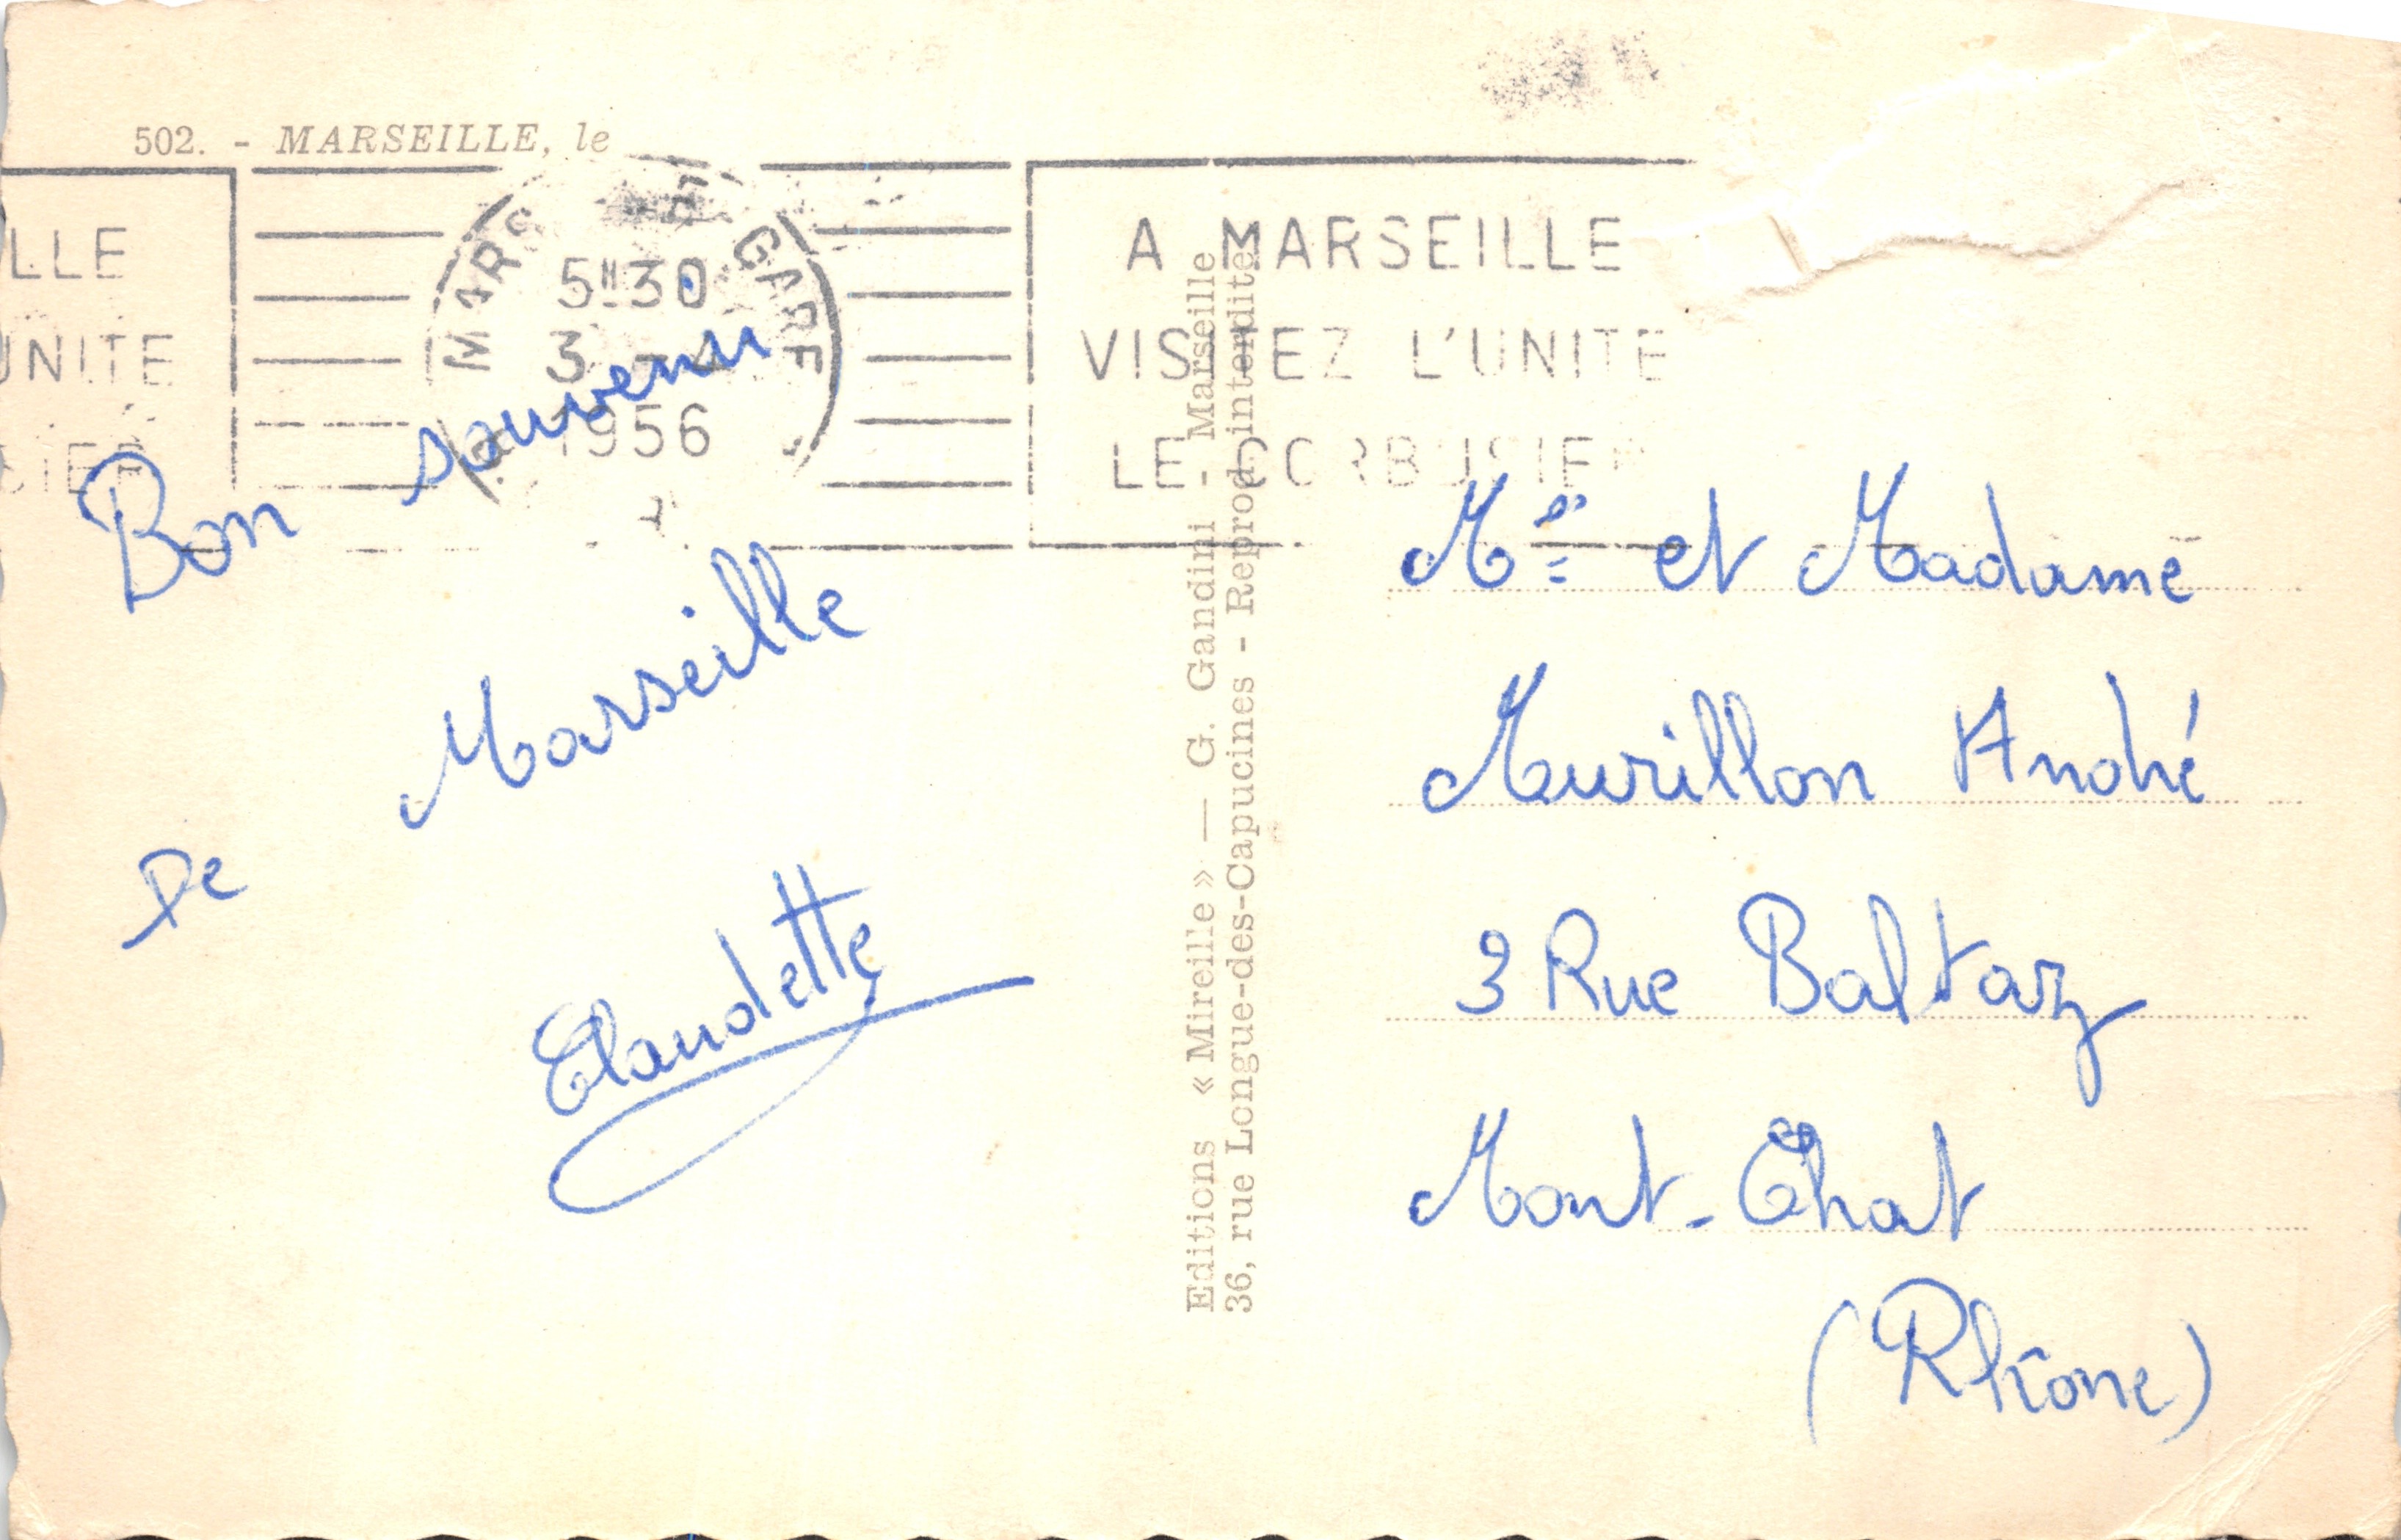 502. - MARSEILLE, le
LLE
UNITE
SIER
MARS GARE
5H30
3
1956
A MARSEILLE
VISITEZ L'UNITE
LE CORBUSIER
Bon souvenir
Marseille
De
Claudette
Editions « Mireille » — G. Gandini - Marseille
36, rue Longue-des-Capucines - Reprod. interdite
Mr et Madame
Murillon André
3 Rue Baltaz
Mont-Chat
(Rhône)